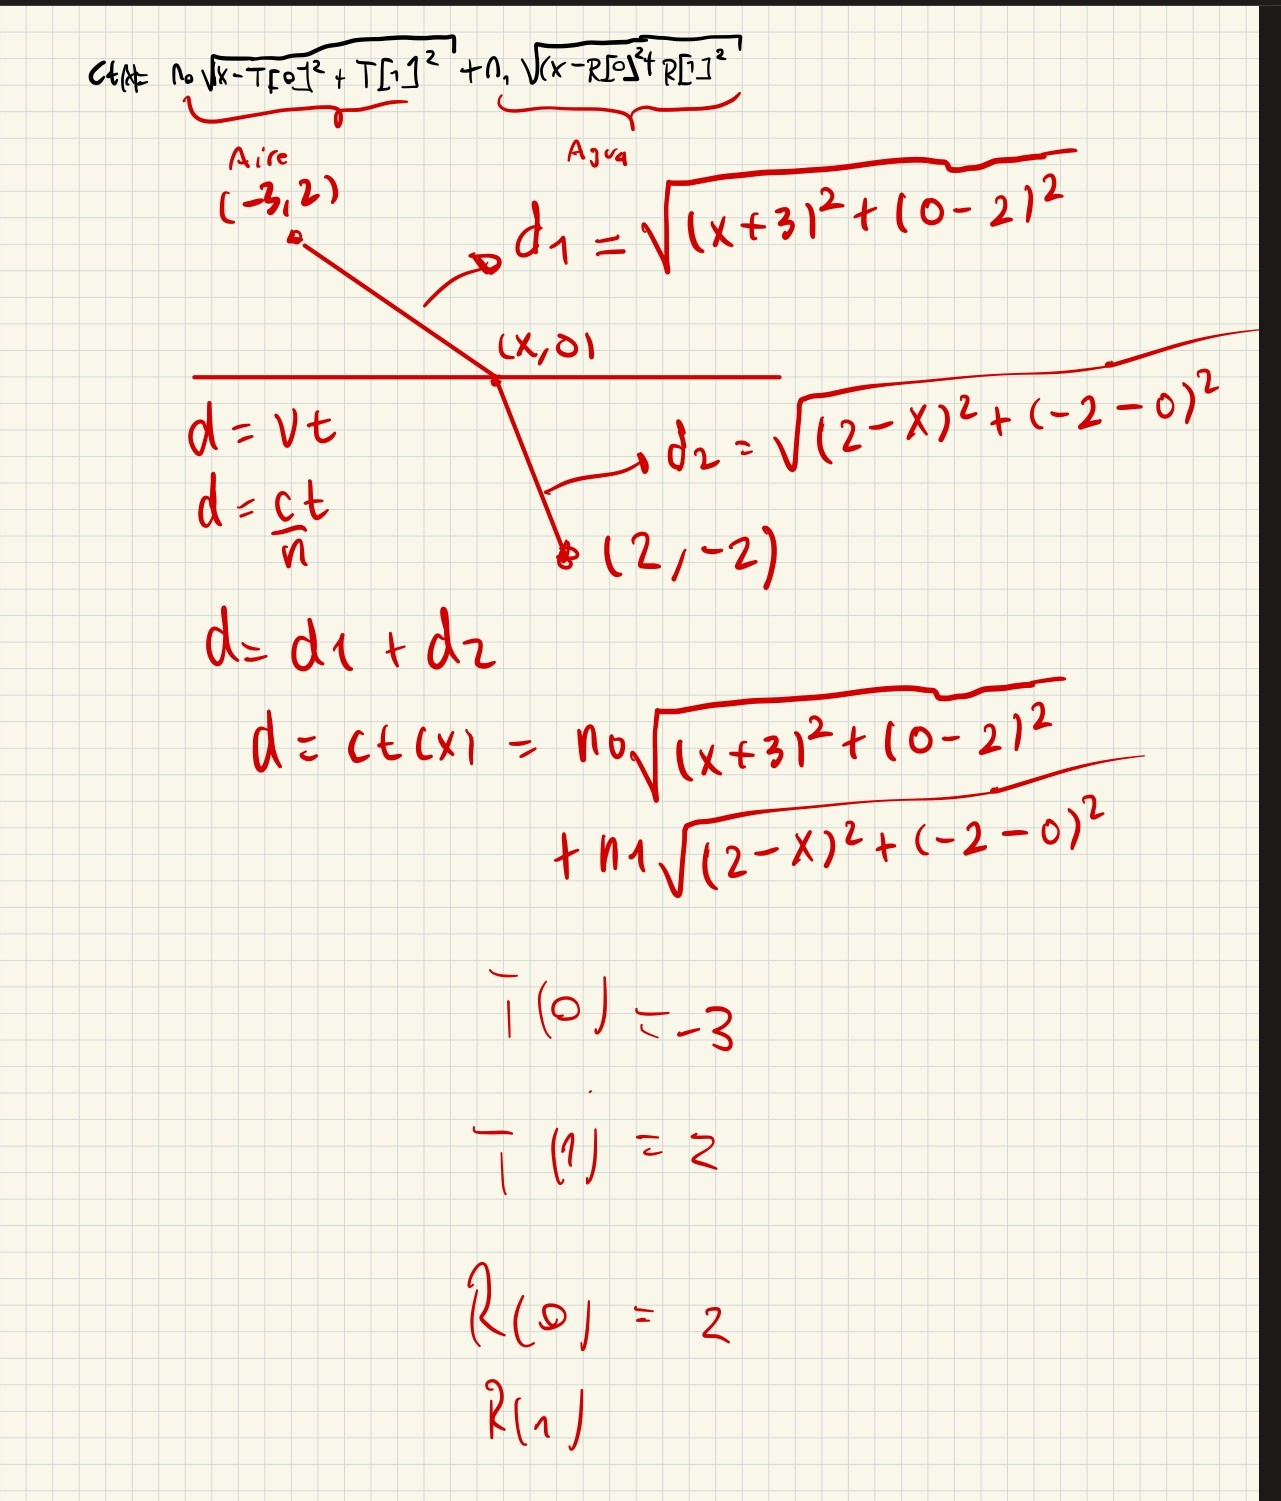 ct(x)= n₀ √(x-T[0])² + T[1]² + n₁ √(x-R[0])² + R[1]²
Aire
Agua
(-3,2)
d₁ = √(x+3)² + (0-2)²
(x,0)
d = vt
d₂ = √(2-x)² + (-2-0)²
d = ct/n
(2,-2)
d = d1 + d2
d = ct(x) = n0 √(x+3)² + (0-2)²
+ n1 √(2-x)² + (-2-0)²
T(0) = -3
T(1) = 2
R(0) = 2
R(1)